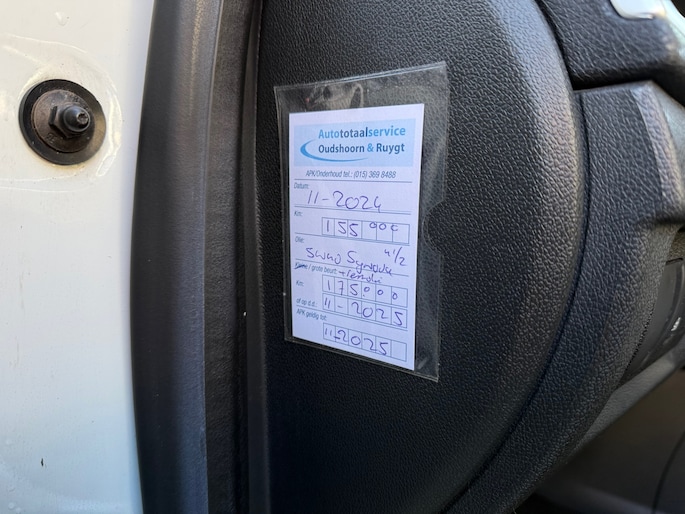 Autototaalservice
Oudshoorn & Ruygt
APK/Onderhoud tel.: (015) 369 8488
Datum:
11-2024
Km:
155000
Olie:
4 1/2
Kleine / grote beurt
Km:
175000
of op d.d.:
11-2025
APK geldig tot:
11-2025